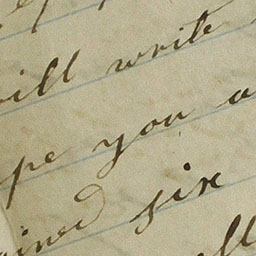 will write
pe you a
ained six